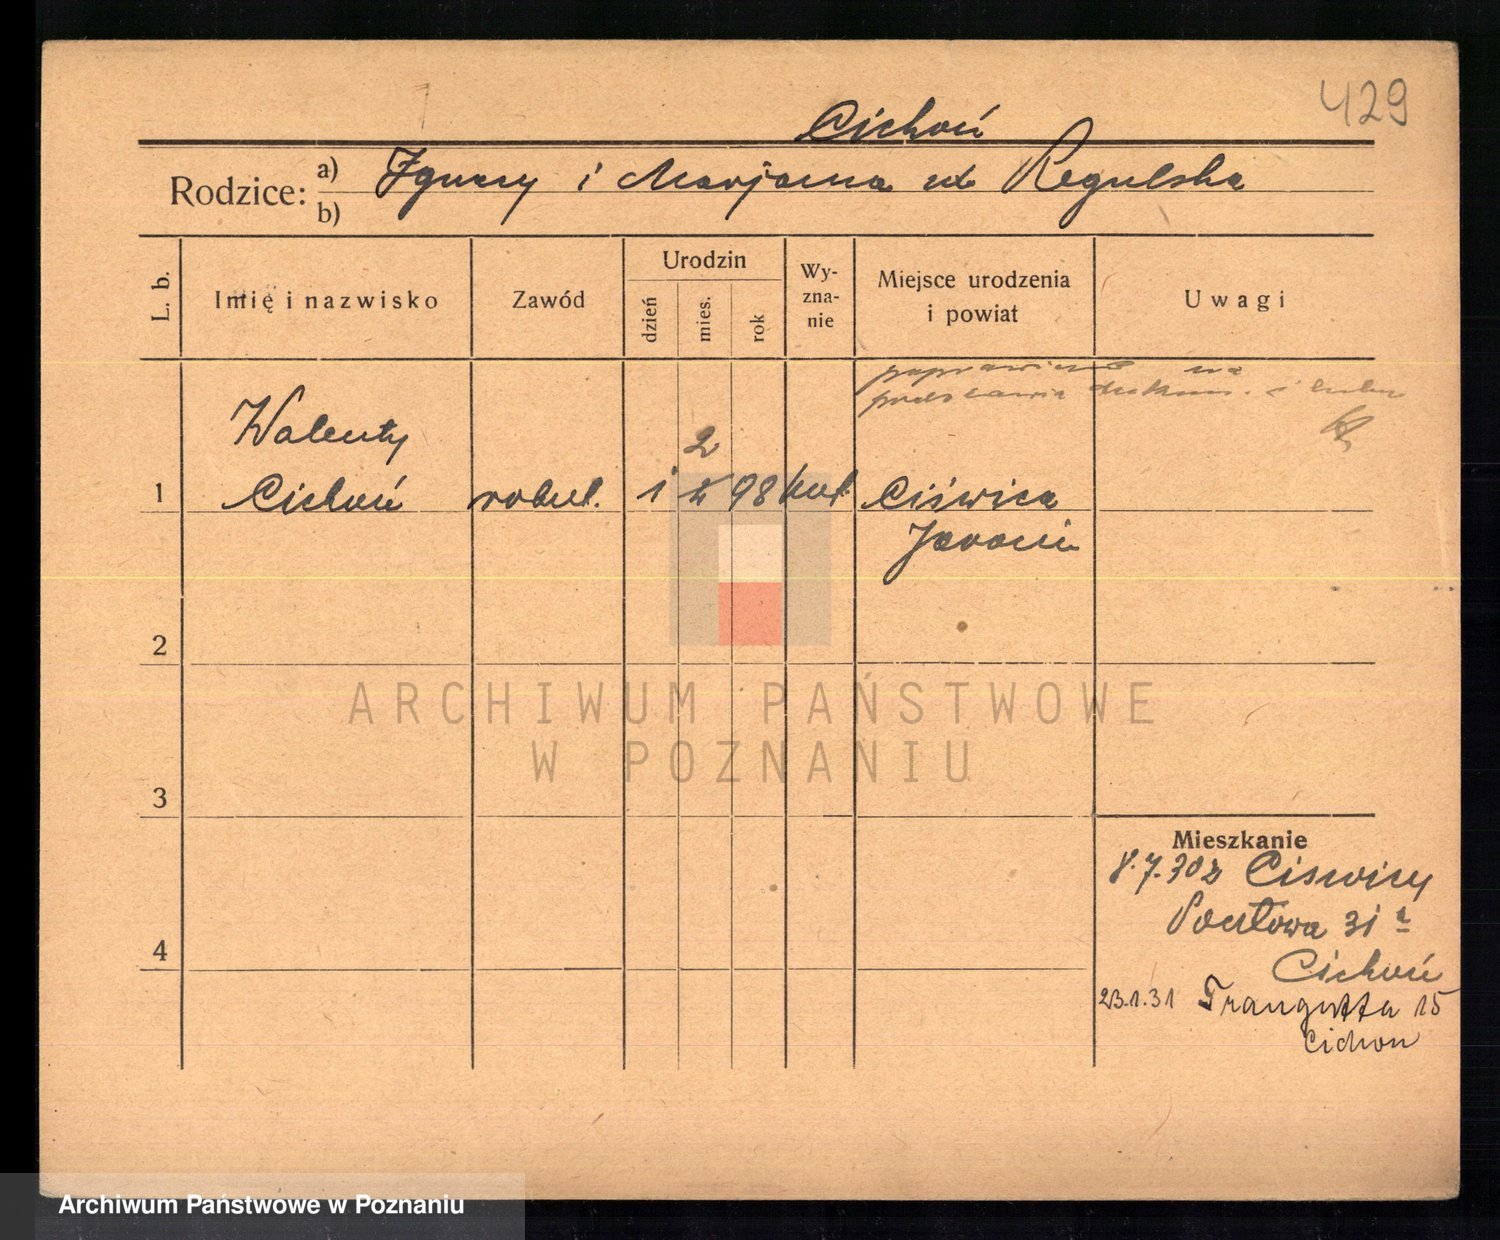 429
Cichoń
Rodzice: a) Ignacy i Marjanna zd. Regulska
b)
L. b.
Imię i nazwisko
Zawód
Urodzin
dzień
mies.
rok
Wy-
zna-
nie
Miejsce urodzenia
i powiat
Uwagi
poprawiono na
podstawie dokum.
Walenty
2
1 Cichoń robot. 1 98 kat. Ciświca
Jarocin
2
3
4
Mieszkanie
8.7.30 z Ciswicy
Pocztowa 31
Cichoń
23.1.31 Traugutta 15
Cichon
ARCHIWUM PAŃSTWOWE
W POZNANIU
Archiwum Państwowe w Poznaniu